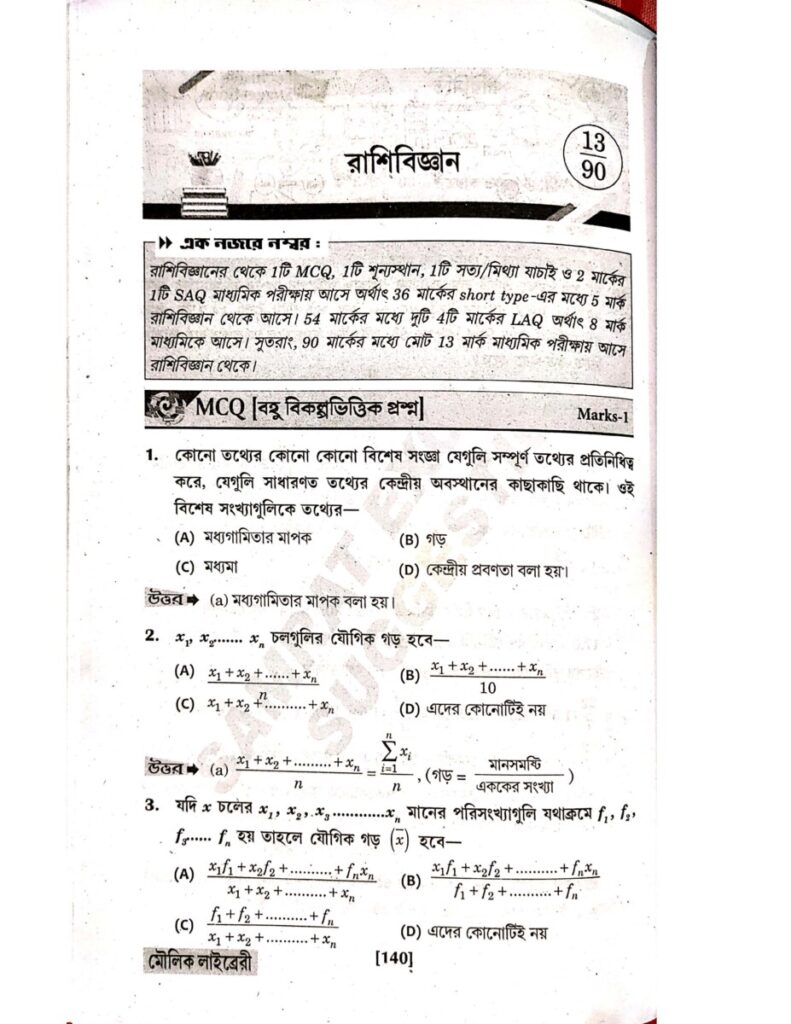 রাশিবিজ্ঞান
13/90
এক নজরে নম্বর :
রাশিবিজ্ঞানের থেকে 1টি MCQ, 1টি শূন্যস্থান, 1টি সত্য/মিথ্যা যাচাই ও 2 মার্কের
1টি SAQ মাধ্যমিক পরীক্ষায় আসে অর্থাৎ 36 মার্কের short type-এর মধ্যে 5 মার্ক
রাশিবিজ্ঞান থেকে আসে। 54 মার্কের মধ্যে দুটি 4টি মার্কের LAQ অর্থাৎ 8 মার্ক
মাধ্যমিকে আসে। সুতরাং, 90 মার্কের মধ্যে মোট 13 মার্ক মাধ্যমিক পরীক্ষায় আসে
রাশিবিজ্ঞান থেকে।
MCQ [বহু বিকল্পভিত্তিক প্রশ্ন] Marks-1
1. কোনো তথ্যের কোনো কোনো বিশেষ সংজ্ঞা যেগুলি সম্পূর্ণ তথ্যের প্রতিনিধিত্ব
করে, যেগুলি সাধারণত তথ্যের কেন্দ্রীয় অবস্থানের কাছাকাছি থাকে। ওই
বিশেষ সংখ্যাগুলিকে তথ্যের—
(A) মধ্যগামিতার মাপক (B) গড়
(C) মধ্যমা (D) কেন্দ্রীয় প্রবণতা বলা হয়।
উত্তর ➡ (a) মধ্যগামিতার মাপক বলা হয়।
2. x₁, x₂...... xₙ চলগুলির যৌগিক গড় হবে—
(A) (x₁ + x₂ + ...... + xₙ)/n (B) (x₁ + x₂ + ...... + xₙ)/10
(C) x₁ + x₂ + .......... + xₙ (D) এদের কোনোটিই নয়
উত্তর ➡ (a) (x₁ + x₂ + ......... + xₙ)/n = (∑ᵢ₌₁ⁿ xᵢ)/n , (গড় = মানসমষ্টি/এককের সংখ্যা)
3. যদি x চলের x₁, x₂, x₃............xₙ মানের পরিসংখ্যাগুলি যথাক্রমে f₁, f₂,
f₃...... fₙ হয় তাহলে যৌগিক গড় (x̄) হবে—
(A) (x₁f₁ + x₂f₂ + .......... + fₙxₙ)/(x₁ + x₂ + .......... + xₙ) (B) (x₁f₁ + x₂f₂ + .......... + fₙxₙ)/(f₁ + f₂ + .......... + fₙ)
(C) (f₁ + f₂ + .......... + fₙ)/(x₁ + x₂ + .......... + xₙ) (D) এদের কোনোটিই নয়
মৌলিক লাইব্রেরী [140]